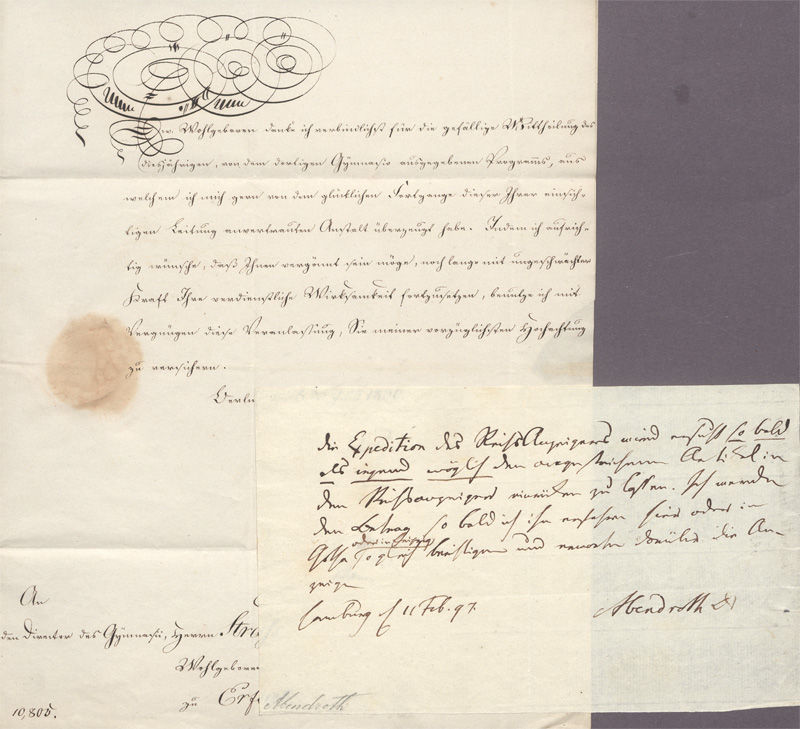 Ew. Wohlgeboren danke ich verbindlichst für die gefällige Mittheilung des
diesjährigen, von dem dortigen Gymnasio ausgegebenen Programms, aus
welchem ich mich gern von dem glücklichen Fortgange dieser Ihrer einsich-
tigen Leitung anvertrauten Anstalt überzeugt habe. Indem ich aufrich-
tig wünsche, daß Ihnen vergönnt sein möge, noch lange mit ungeschwächter
Kraft Ihre verdienstliche Wirksamkeit fortzusetzen, benutze ich mit
Vergnügen diese Veranlassung, Sie meiner vorzüglichsten Hochachtung
zu versichern.
Berlin
An
den Director des Gymnasii, Herrn Stra
Wohlgeboren
zu Erf
10,805.
die Expedition des ReichsAnzeigers wird ersucht so bald
als irgend möglich den angestrichenen Artikel in
den Reichsanzeiger einrücken zu lassen. Ich werde
den Betrag so bald ich ihn erfahre hier oder in
oder in Leipzig
Gotha sogleich berichtigen und erwarte darüber die An-
zeige
Hamburg d 11 Feb. 97.
Abendroth
Abendroth